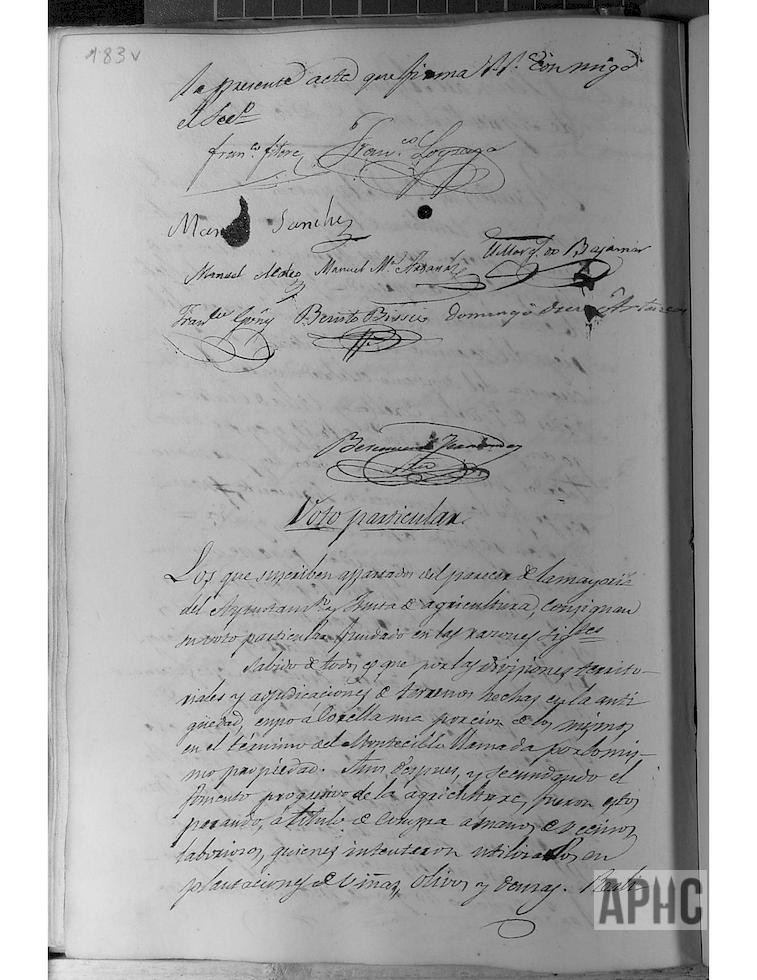 183 v
la presente acta que firma V.S. conmigo
el Secº
Fran.co Fran.co
Man Sanchez
Manuel Manuel Mª Marq. de Bajamar
Fran.co Benito Domingo
Fernandez
Voto particular.
Los que suscriben apartados del parecer de la mayoria
del Ayuntamto y Junta de agricultura, consignan
su voto particular fundado en las razones sigtes
Sabido de todos es que por las divisiones territo-
riales y adjudicaciones de terrenos hechas en la anti
güedad, cupo á Corella una porcion de los mismos
en el término del Montecillo llamada por lo mis-
mo propiedad. Años despues, y secundando el
fomento progresivo de la agricultura, fueron estos
pasando, á titulo de compra a manos de vecinos
laboriosos, quienes intentaron utilizarlos en
plantaciones de viñas, olivos y demas.
APHC